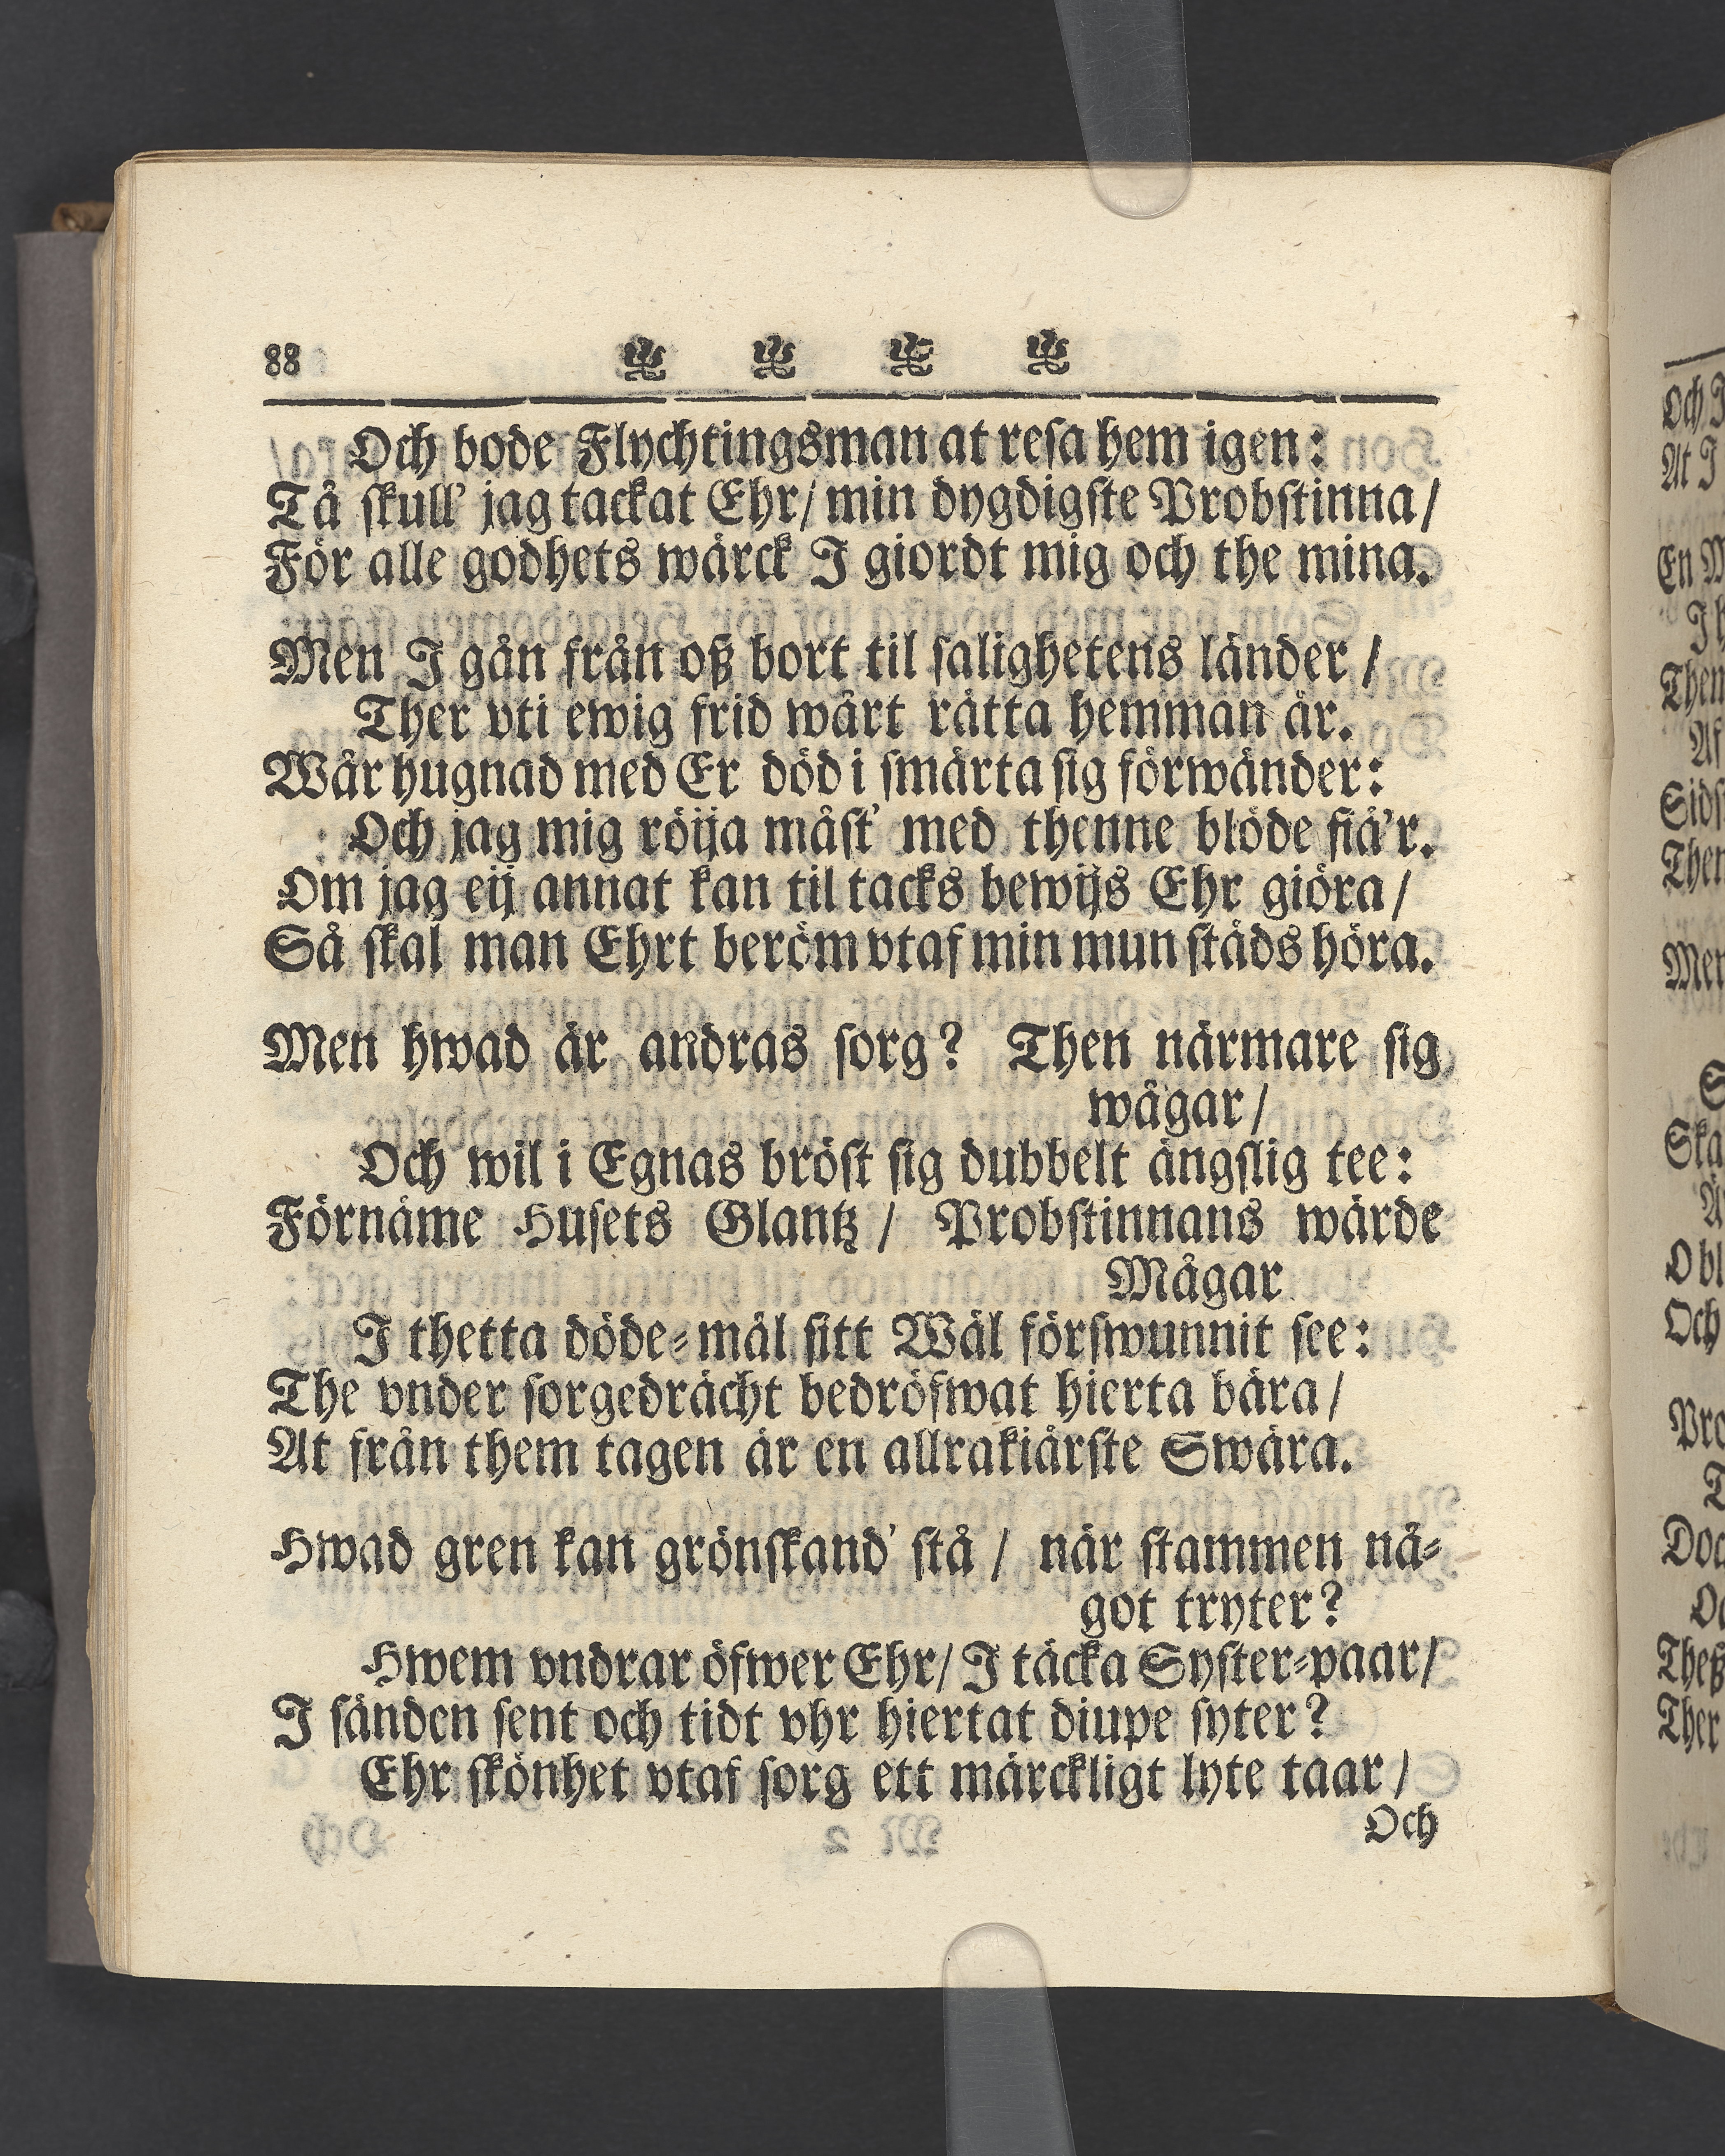 88
Och bode Flychtingsman at resa hem igen:
Tå skull' jag tackat Ehr/ min dygdigste Probstinna/
För alle godhets wärck I giordt mig och the mina.
Men I gån från oß bort til salighetens länder /
Ther vti ewig frid wårt rätta hemman är.
Wår hugnad med Er död i smärta sig förwänder:
Och jag mig röija måst' med thenne blöde fiä'r.
Om jag eij annat kan til tacks bewijs Ehr giöra/
Så skal man Ehrt beröm vtaf min mun städs höra.
Men hwad är andras sorg? Then närmare sig
wägar/
Och wil i Egnas bröst sig dubbelt ängslig tee:
Förnäme Husets Glantz / Probstinnans wärde
Mågar
I thetta döde-mål sitt Wäl förswunnit see:
The vnder sorgedrächt bedröfwat hierta bära/
At från them tagen är en allrakiärste Swära.
Hwad gren kan grönskand' stå / när stammen nå-
got tryter?
Hwem vndrar öfwer Ehr/ I täcka Syster-paar/
I sänden sent och tidt vhr hiertat diupe syter?
Ehr skönhet vtaf sorg ett märckligt lyte taar/
Och
Och
At I
En
Them
Af
Men
Och